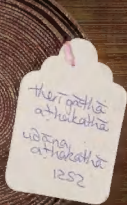 therīgāthā
aṭṭhakathā
udāna
aṭṭhakathā
1252